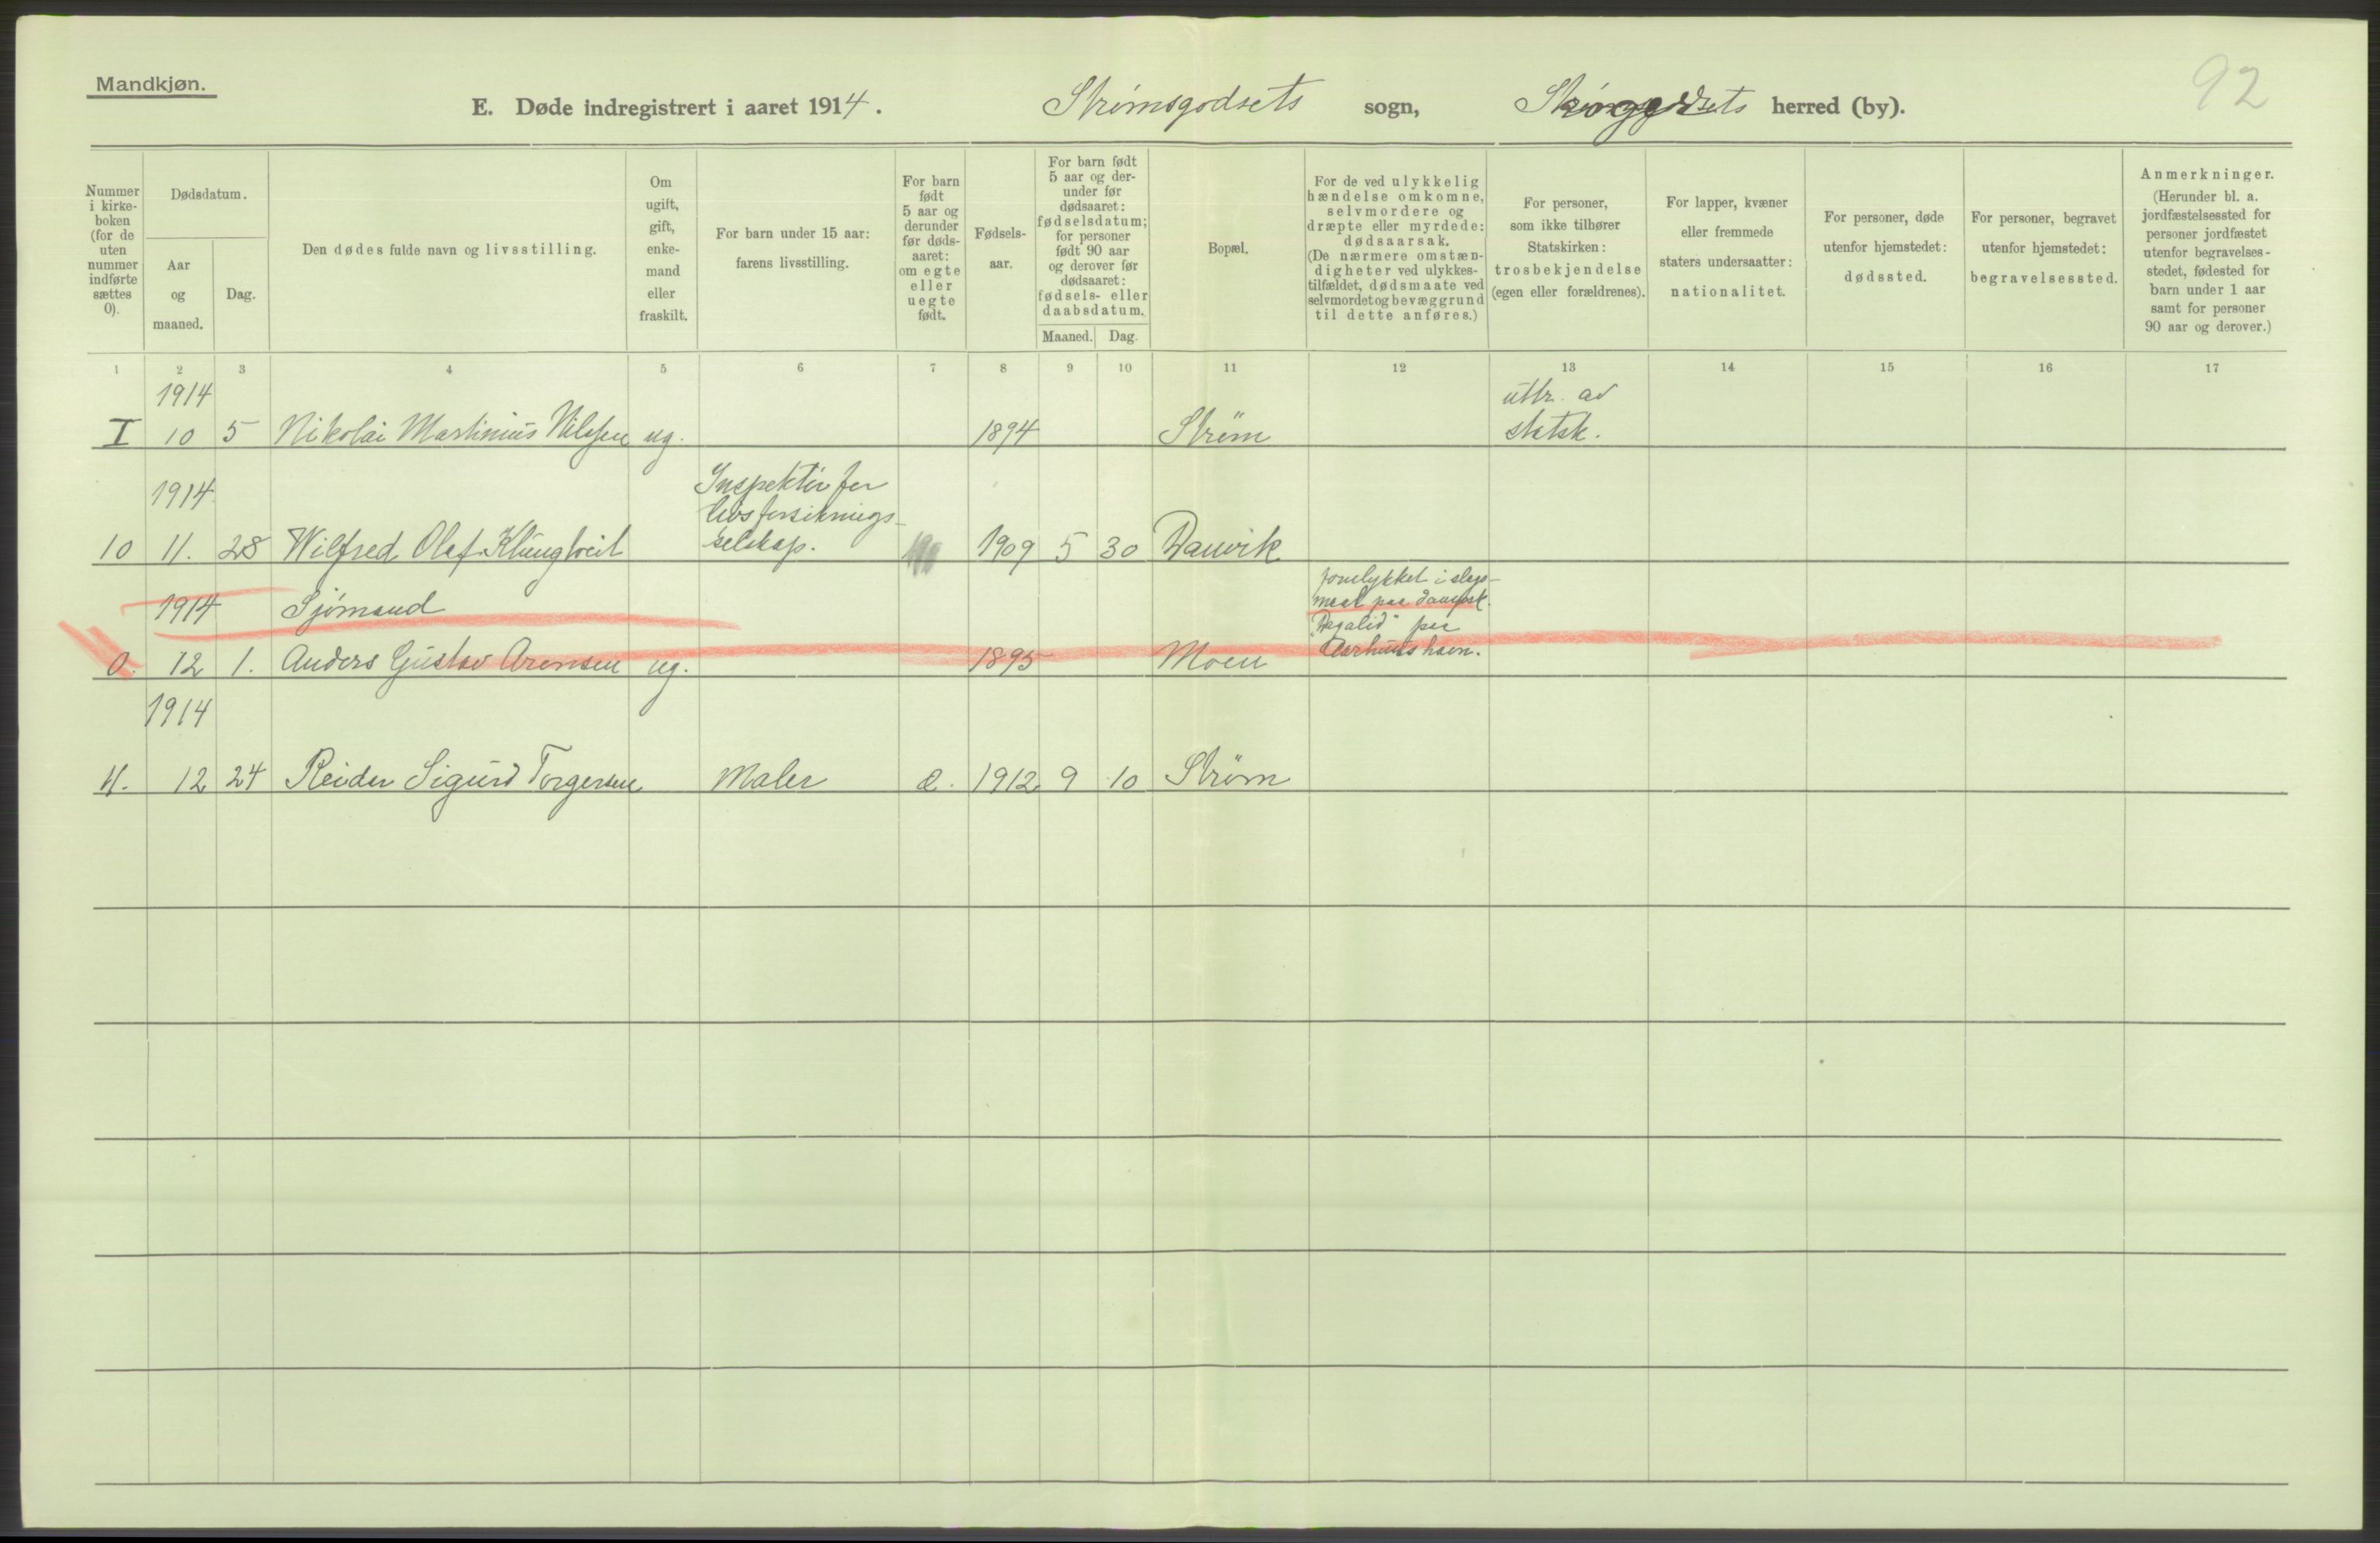 Mandkjøn.
92
E. Døde indregistrert i aaret 1914. Strømsgodsets sogn, herred (by).
Nummer
i kirke-
boken
(for de
uten
nummer
indførte
sættes
0).
Dødsdatum.
Aar
og
maaned.
Dag.
Den dødes fulde navn og livsstilling.
Om
ugift,
gift,
enke-
mand
eller
fraskilt.
For barn under 15 aar:
farens livsstilling.
For barn
født
5 aar og
derunder
før døds-
aaret:
om egte
eller
uegte
født.
Fødsels-
aar.
For barn født
5 aar og der-
under før
dødsaaret:
fødselsdatum;
for personer
født 90 aar
og derover før
dødsaaret:
fødsels- eller
daabsdatum.
Maaned. Dag.
Bopæl.
For de ved ulykkelig
hændelse omkomne,
selvmordere og
dræpte eller myrdede:
dødsaarsak.
(De nærmere omstæn-
digheter ved ulykkes-
tilfældet, dødsmaate ved
selvmordet og bevæggrund
til dette anføres.)
For personer,
som ikke tilhører
Statskirken:
trosbekjendelse
(egen eller forældrenes).
For lapper, kvæner
eller fremmede
staters undersaatter:
nationalitet.
For personer, døde
utenfor hjemstedet:
dødssted.
For personer, begravet
utenfor hjemstedet:
begravelsessted.
Anmerkninger.
(Herunder bl. a.
jordfæstelsessted for
personer jordfæstet
utenfor begravelses-
stedet, fødested for
barn under 1 aar
samt for personer
90 aar og derover.)
1 2 3 4 5 6 7 8 9 10 11 12 13 14 15 16 17
1914 uttr. av
I 10 5 Nikolai Martinius Nilssen ug. 1894 Strøm statsk.
Inspektør for
1914 livsforsiknings-
10 11. 28 Wilfred Olaf selskap. 1909 5 30 Danvik
forulykket i slags-
1914 Sjømand maal paa dampsk.
paa
0. 12 1. Anders Gustav Arensen ug. 1895 Moen Aarhuus havn.
1914
11. 12 24 Reidar Sigurd Torgersen Maler e. 1912 9 10 Strøm